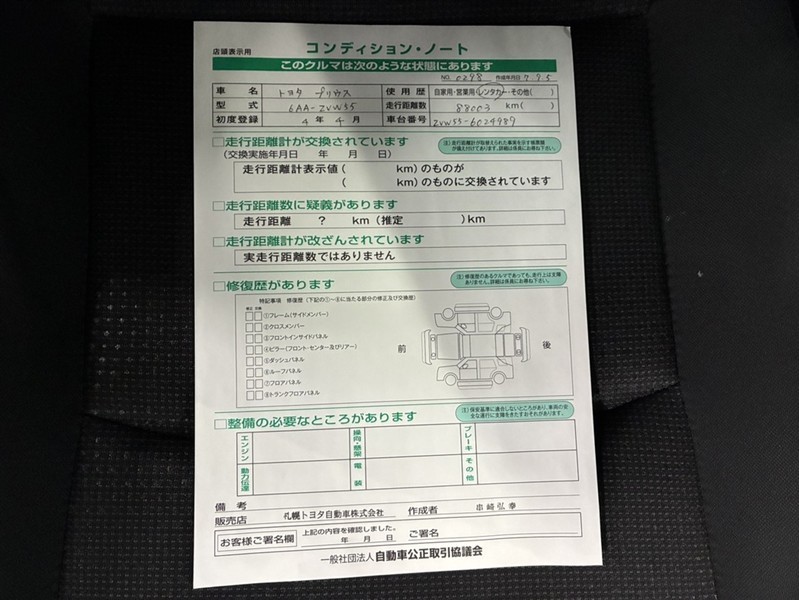 店頭表示用 コンディション・ノート
このクルマは次のような状態にあります
NO. 0298 作成年月日 7.9.5
車名 トヨタ プリウス 使用歴 自家用・営業用・レンタカー・その他( )
型式 6AA-ZVW55 走行距離数 88003 km( )
初度登録 4年4月 車台番号 ZVW55-6024989
□走行距離計が交換されています
(交換実施年月日 年 月 日)
(注)走行距離計が取替えられた事実を示す帳票類が備え付けてあります。詳細は係員にお尋ね下さい。
走行距離計表示値( km)のものが
( km)のものに交換されています
□走行距離数に疑義があります
走行距離 ? km(推定 )km
□走行距離計が改ざんされています
実走行距離数ではありません
□修復歴があります
(注)修復歴のあるクルマであっても、走行上は支障ありません。詳細は係員にお尋ね下さい。
特記事項 修復歴(下記の①〜⑧に当たる部分の修正及び交換歴)
修正 交換
□□①フレーム(サイドメンバー)
□□②クロスメンバー
□□③フロントインサイドパネル
□□④ピラー(フロント・センター及びリアー)
□□⑤ダッシュパネル
□□⑥ルーフパネル
□□⑦フロアパネル
□□⑧トランクフロアパネル
前 後
□整備の必要なところがあります
(注)保安基準に適合しないところがあり、車両の安全な運行に支障をきたすおそれがあります。
エンジン 操向・懸架 ブレーキ
動力伝達 電装 その他
備考
販売店 札幌トヨタ自動車株式会社 作成者 串崎弘幸
お客様ご署名欄 上記の内容を確認しました。
年 月 日 ご署名
一般社団法人 自動車公正取引協議会